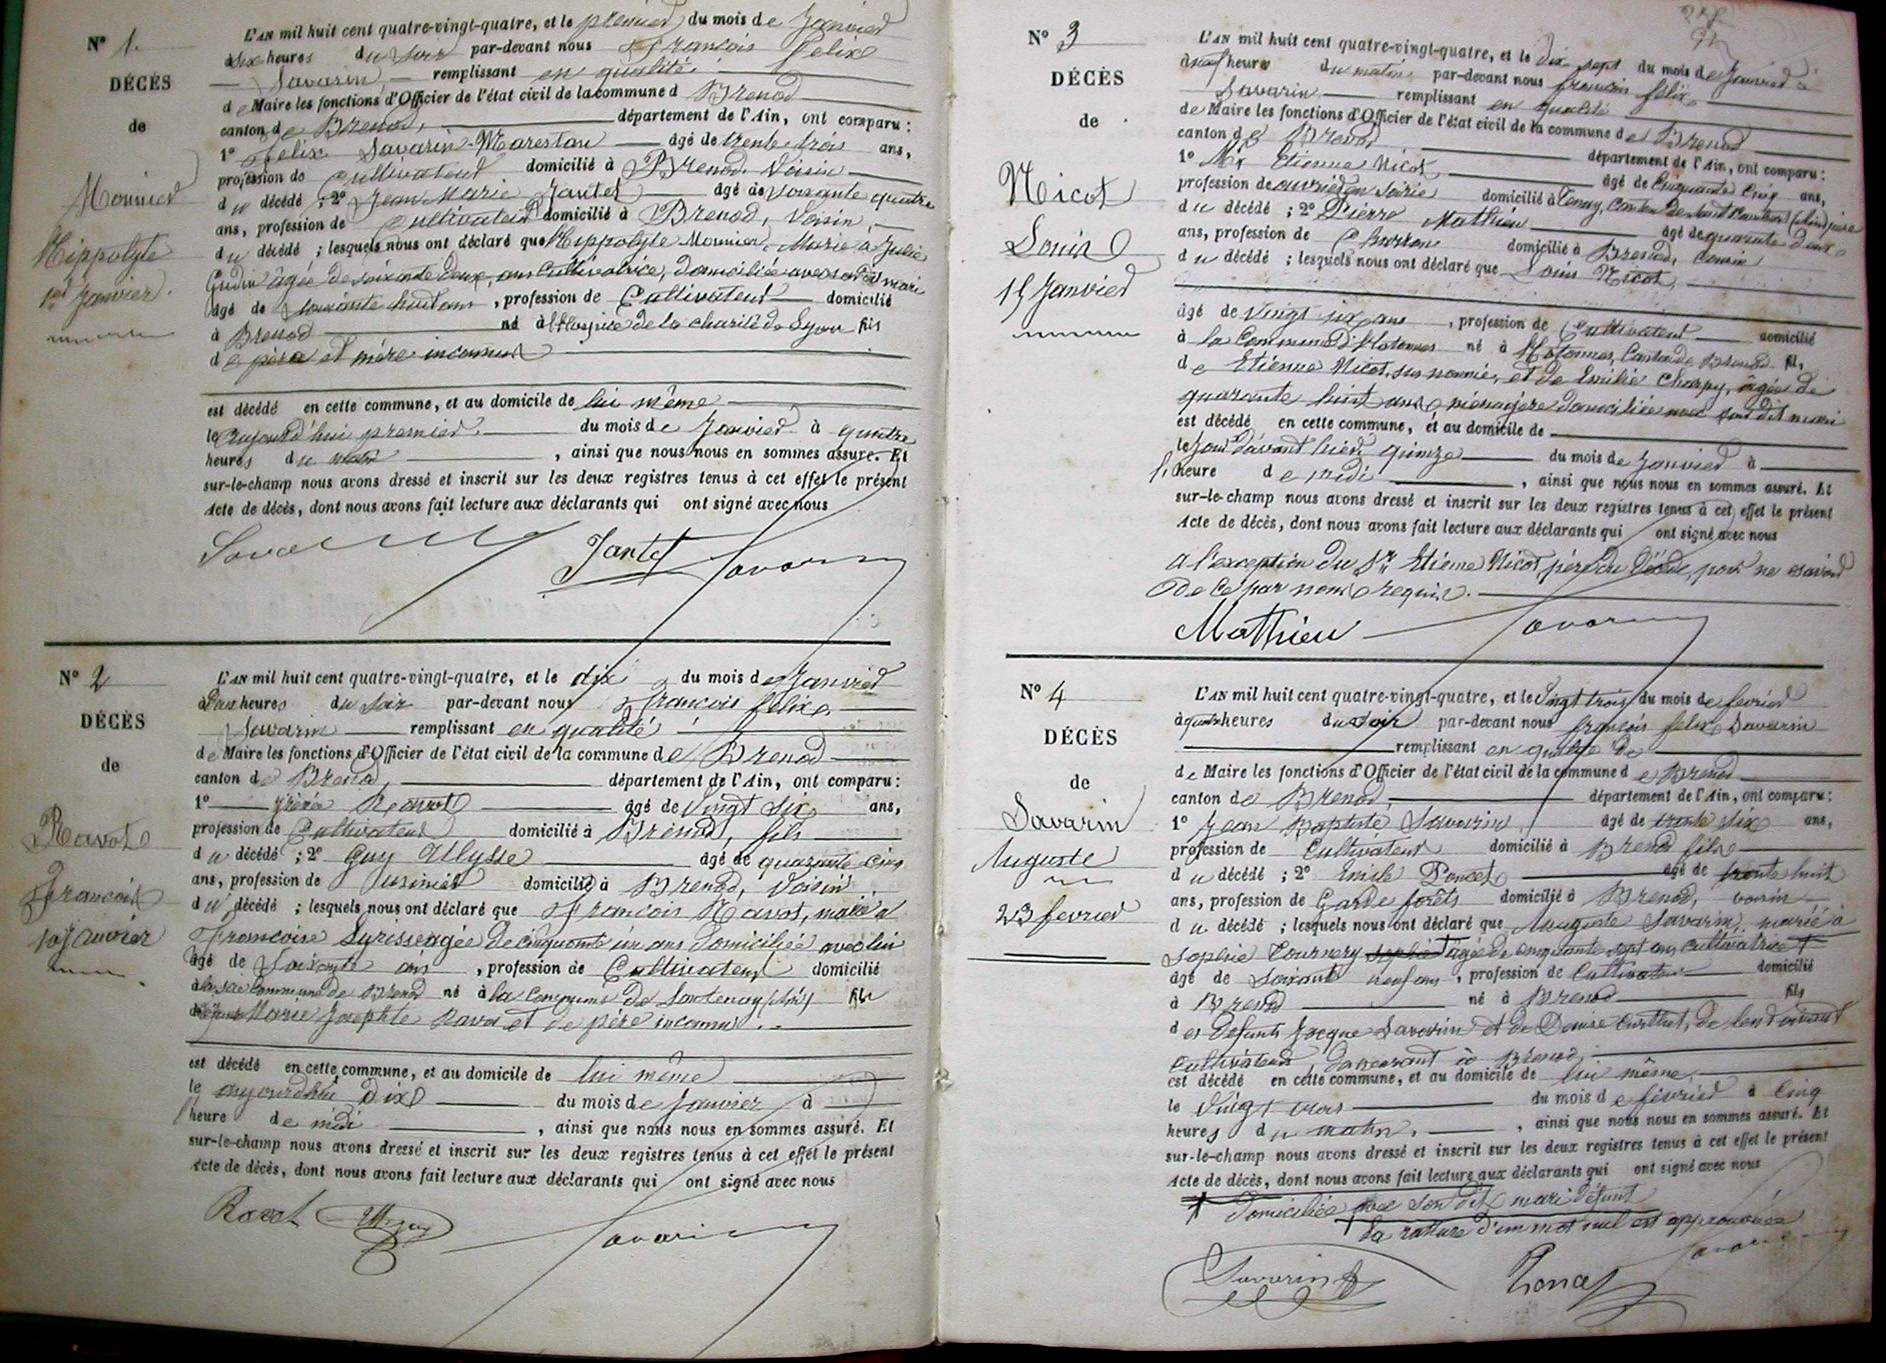 N° 1.
DÉCÈS
de
Mounier
Hippolyte
1er Janvier.
L'AN mil huit cent quatre-vingt-quatre, et le premier du mois de Janvier
à six heures du soir par-devant nous François Felix
Savarin remplissant en qualité
de Maire les fonctions d'Officier de l'état civil de la commune d Brenod
canton de Brenod, département de l'Ain, ont comparu :
1° Felix Savarin-Marestan âgé de trente trois ans,
profession de Cultivateur domicilié à Brenod. Voisin
du décédé ; 2° Jean Marie Jantet âgé de soixante quatre
ans, profession de Cultivateur domicilié à Brenod, Voisin,
du décédé ; lesquels nous ont déclaré que Hippolyte Mounier, Marié à Julie
Gudin âgée de soixante deux ans Cultivatrice, domiciliée avec son mari
âgé de soixante huit ans, profession de Cultivateur domicilié
à Brenod né à l'Hospice de la charité de Lyon fils
de père et mère inconnus
est décédé en cette commune, et au domicile de lui même
le aujourd'hui premier du mois de Janvier à quatre
heures du matin, ainsi que nous nous en sommes assuré. Et
sur-le-champ nous avons dressé et inscrit sur les deux registres tenus à cet effet le présent
Acte de décès, dont nous avons fait lecture aux déclarants qui ont signé avec nous
Jantet Savarin
N° 2
DÉCÈS
de
Ravot
François
10 Janvier
L'AN mil huit cent quatre-vingt-quatre, et le dix du mois de Janvier
à Deux heures du soir par-devant nous François felix
Savarin remplissant en qualité
de Maire les fonctions d'Officier de l'état civil de la commune de Brenod
canton de Brenod, département de l'Ain, ont comparu :
1° Ravot âgé de Vingt six ans,
profession de Cultivateur domicilié à Brenod, fils
du décédé ; 2° Guy Ulysse âgé de quarante cinq
ans, profession de Usinier domicilié à Brenod, Voisin
du décédé ; lesquels nous ont déclaré que François Ravot, marié à
Francoise âgée de cinquante un ans domiciliée avec lui
âgé de Soixante ans, profession de Cultivateur domicilié
commune de Brenod né à la Commune de fils
Marie Josephte Ravot et de père inconnu.
est décédé en cette commune, et au domicile de lui même
le aujourdhui Dix du mois de Janvier à
l'heure de midi, ainsi que nous nous en sommes assuré. Et
sur-le-champ nous avons dressé et inscrit sur les deux registres tenus à cet effet le présent
Acte de décès, dont nous avons fait lecture aux déclarants qui ont signé avec nous
Ravot Savarin
N° 3
DÉCÈS
de
Nicot
Louis
15 Janvier
L'AN mil huit cent quatre-vingt-quatre, et le dix sept du mois de Janvier à
à neuf heures du matin par-devant nous françois felix
Savarin remplissant en qualité
de Maire les fonctions d'Officier de l'état civil de la commune de Brenod
canton de Brenod, département de l'Ain, ont comparu :
1° Etienne Nicot âgé de Cinquante Cinq ans,
profession de ouvrier en soirie domicilié à Tenay, Canton de Saint Rambert (Ain) père
du décédé ; 2° Pierre Mathieu âgé de quarante deux
ans, profession de domicilié à Brenod, cousin
du décédé ; lesquels nous ont déclaré que Louis Nicot
âgé de Vingt six ans, profession de Cultivateur domicilié
à la Commune d'Hotonnes né à Hotonnes, Canton de Brenod fils
de Etienne Nicot, sus nommé, et de Emilie Charpy, âgée de
quarante huit ans, ménagère domiciliée avec son dit mari
est décédé en cette commune, et au domicile de
le jour d'avant hier quinze du mois de Janvier à
l'heure de midi, ainsi que nous nous en sommes assuré. Et
sur-le-champ nous avons dressé et inscrit sur les deux registres tenus à cet effet le présent
Acte de décès, dont nous avons fait lecture aux déclarants qui ont signé avec nous
a l'exception du Sr Etienne Nicot, père du Décédé, pour ne savoir
de ce par nous requis.
Mathieu Savarin
N° 4
DÉCÈS
de
Savarin
Auguste
23 fevrier
L'AN mil huit cent quatre-vingt-quatre, et le Vingt trois du mois de fevrier
à quatre heures du soir par-devant nous françois felix Savarin
remplissant en qualité de
de Maire les fonctions d'Officier de l'état civil de la commune de Brenod
canton de Brenod, département de l'Ain, ont comparu :
1° Jean Baptiste Savarin âgé de trente six ans,
profession de Cultivateur domicilié à Brenod fils
du décédé ; 2° Emile Poncet âgé de trente huit
ans, profession de Garde forêts domicilié à Brenod, voisin
du décédé ; lesquels nous ont déclaré que Auguste Savarin, marié à
Sophie Tournery agée de cinquante sept ans cultivatrice +
âgé de Soixante neuf ans, profession de Cultivateur domicilié
à Brenod né à Brenod fils
des Défunts Jacque Savarin et de Denise de leur vivant
Cultivateurs demeurant à Brenod,
est décédé en cette commune, et au domicile de lui même.
le Vingt trois du mois de fevrier à Cinq
heures du matin, ainsi que nous nous en sommes assuré. Et
sur-le-champ nous avons dressé et inscrit sur les deux registres tenus à cet effet le présent
Acte de décès, dont nous avons fait lecture aux déclarants qui ont signé avec nous
+ Domiciliée avec son dit mari défunt
La rature d'un mot nul est approuvée
Savarin
Savarin Poncet